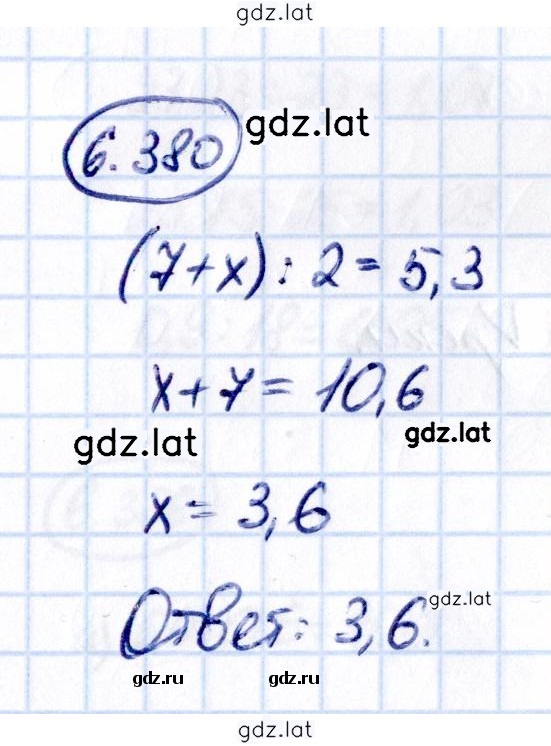 gdz.lat
6.380 gdz.lat
(7+x) : 2 = 5,3
x + 7 = 10,6
gdz.lat gdz.lat
x = 3,6
gdz.lat
Ответ: 3,6.
gdz.ru gdz.ru
gdz.lat